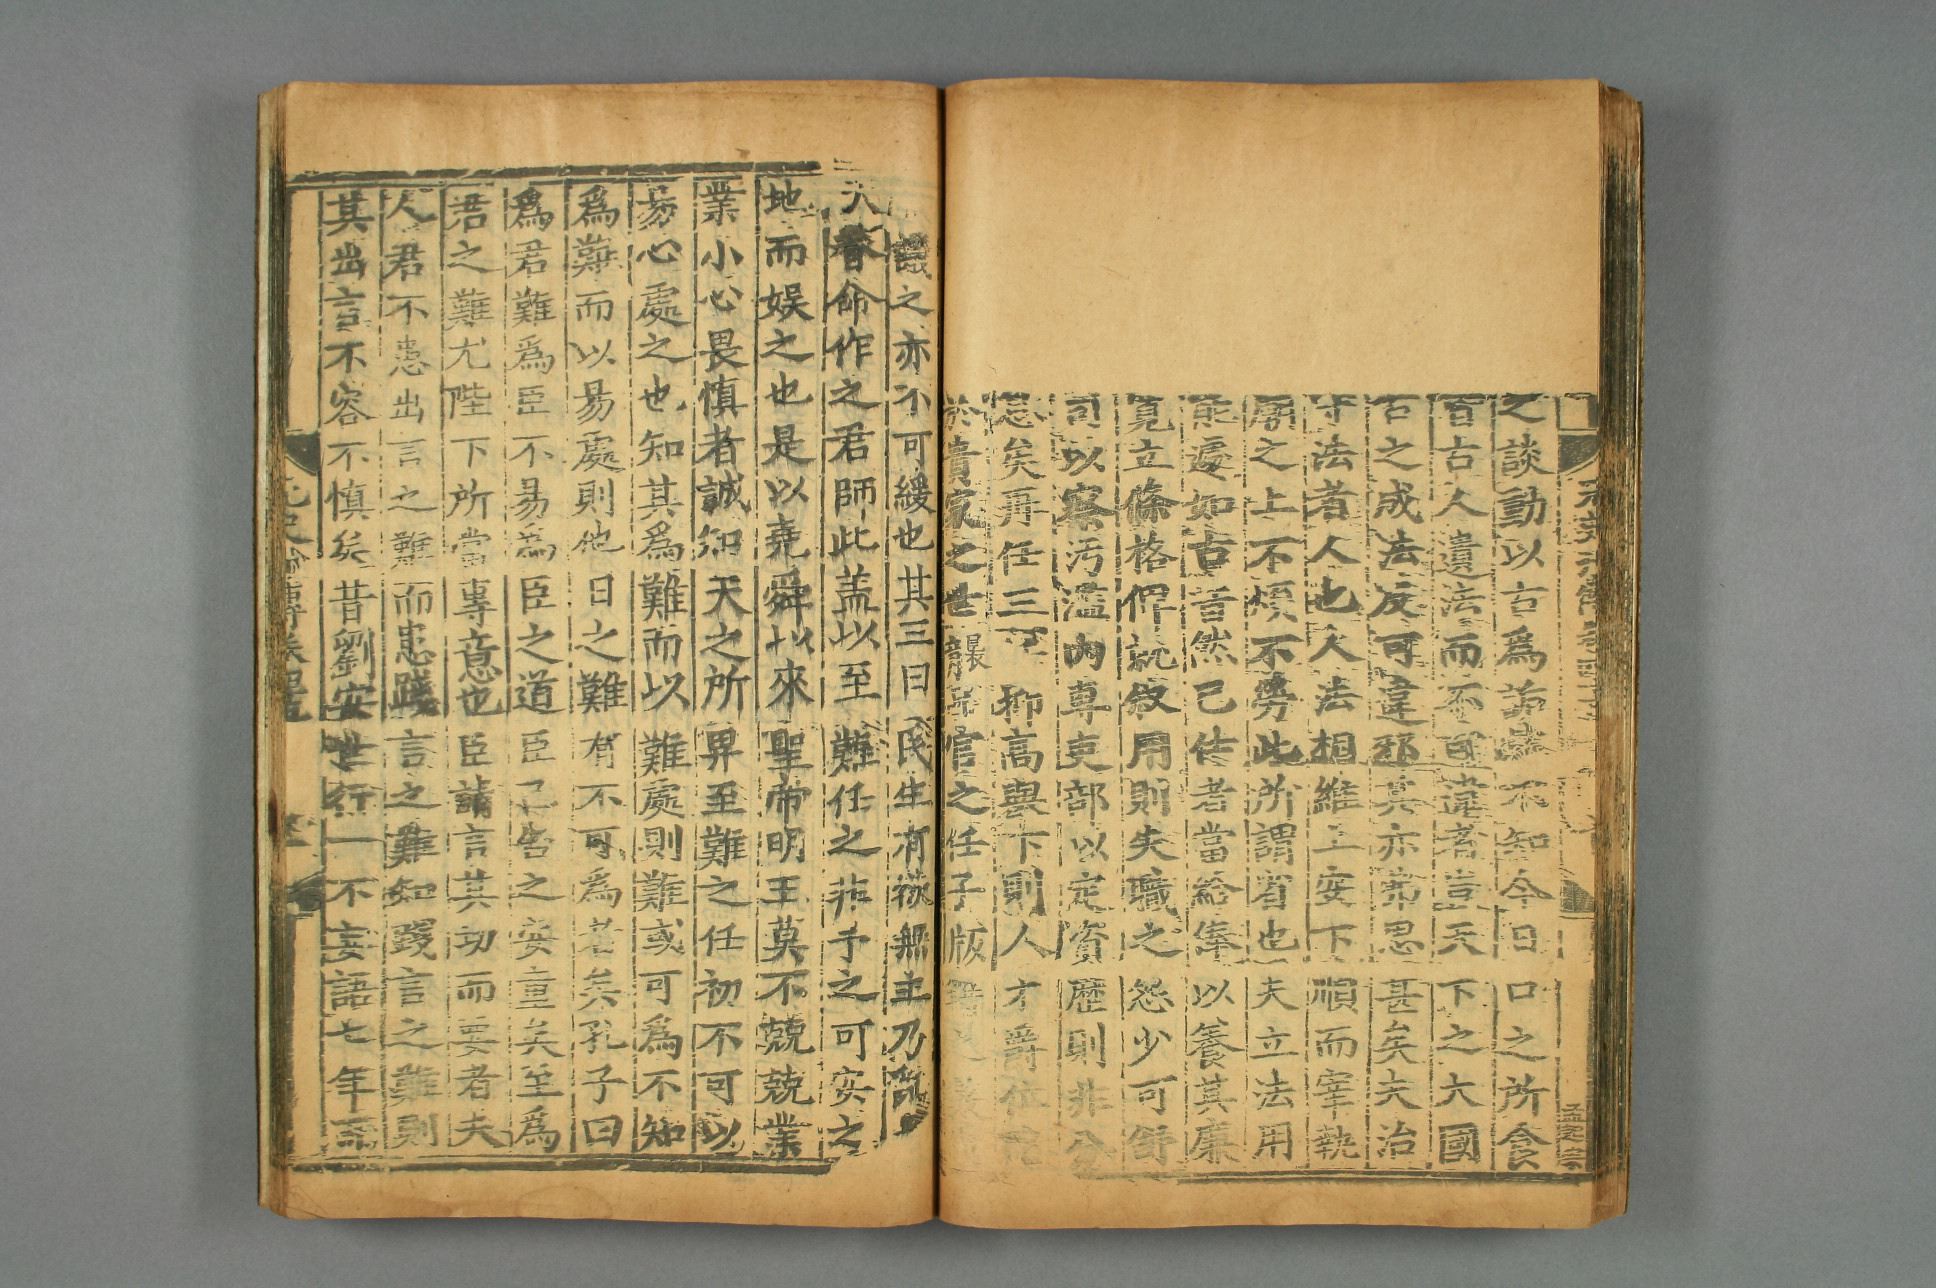 之談動以古爲詬戲不知今日口之所食
古人遺法而不可違者豈天下之大國
古之成法反可違邪其亦弗思甚矣夫治
守法者人也人法相維上安下順而宰執
廟之上不煩不勞此所謂省也夫立法用
能遽如古昔然已仕者當給俸以養其廉
寬立條格俾就敘用則失職之怨少可舒
司以察汚濫內專吏部以定資歷則非分
息矣再任三
抑高舉下則人才爵位
於貴家之世襲
官之任子版籍之
議之亦不可緩也其三曰民生有欲無主乃亂
天眷命作之君師此蓋以至難任之非予之可安之
地而娛之也是以堯舜以來聖帝明王莫不兢兢業
業小心畏愼者誠知天之所畀至難之任初不可以
易心處之也知其爲難而以難處則難或可爲不知
爲難而以易處則他日之難有不可爲者矣孔子曰
爲君難爲臣不易爲臣之道臣已告之安童矣至爲
君之難尤陛下所當專意也臣請言其切而要者夫
人君不患出言之難而患踐言之難知踐言之難則
其出言不容不愼矣昔劉安世行一不妄語七年而